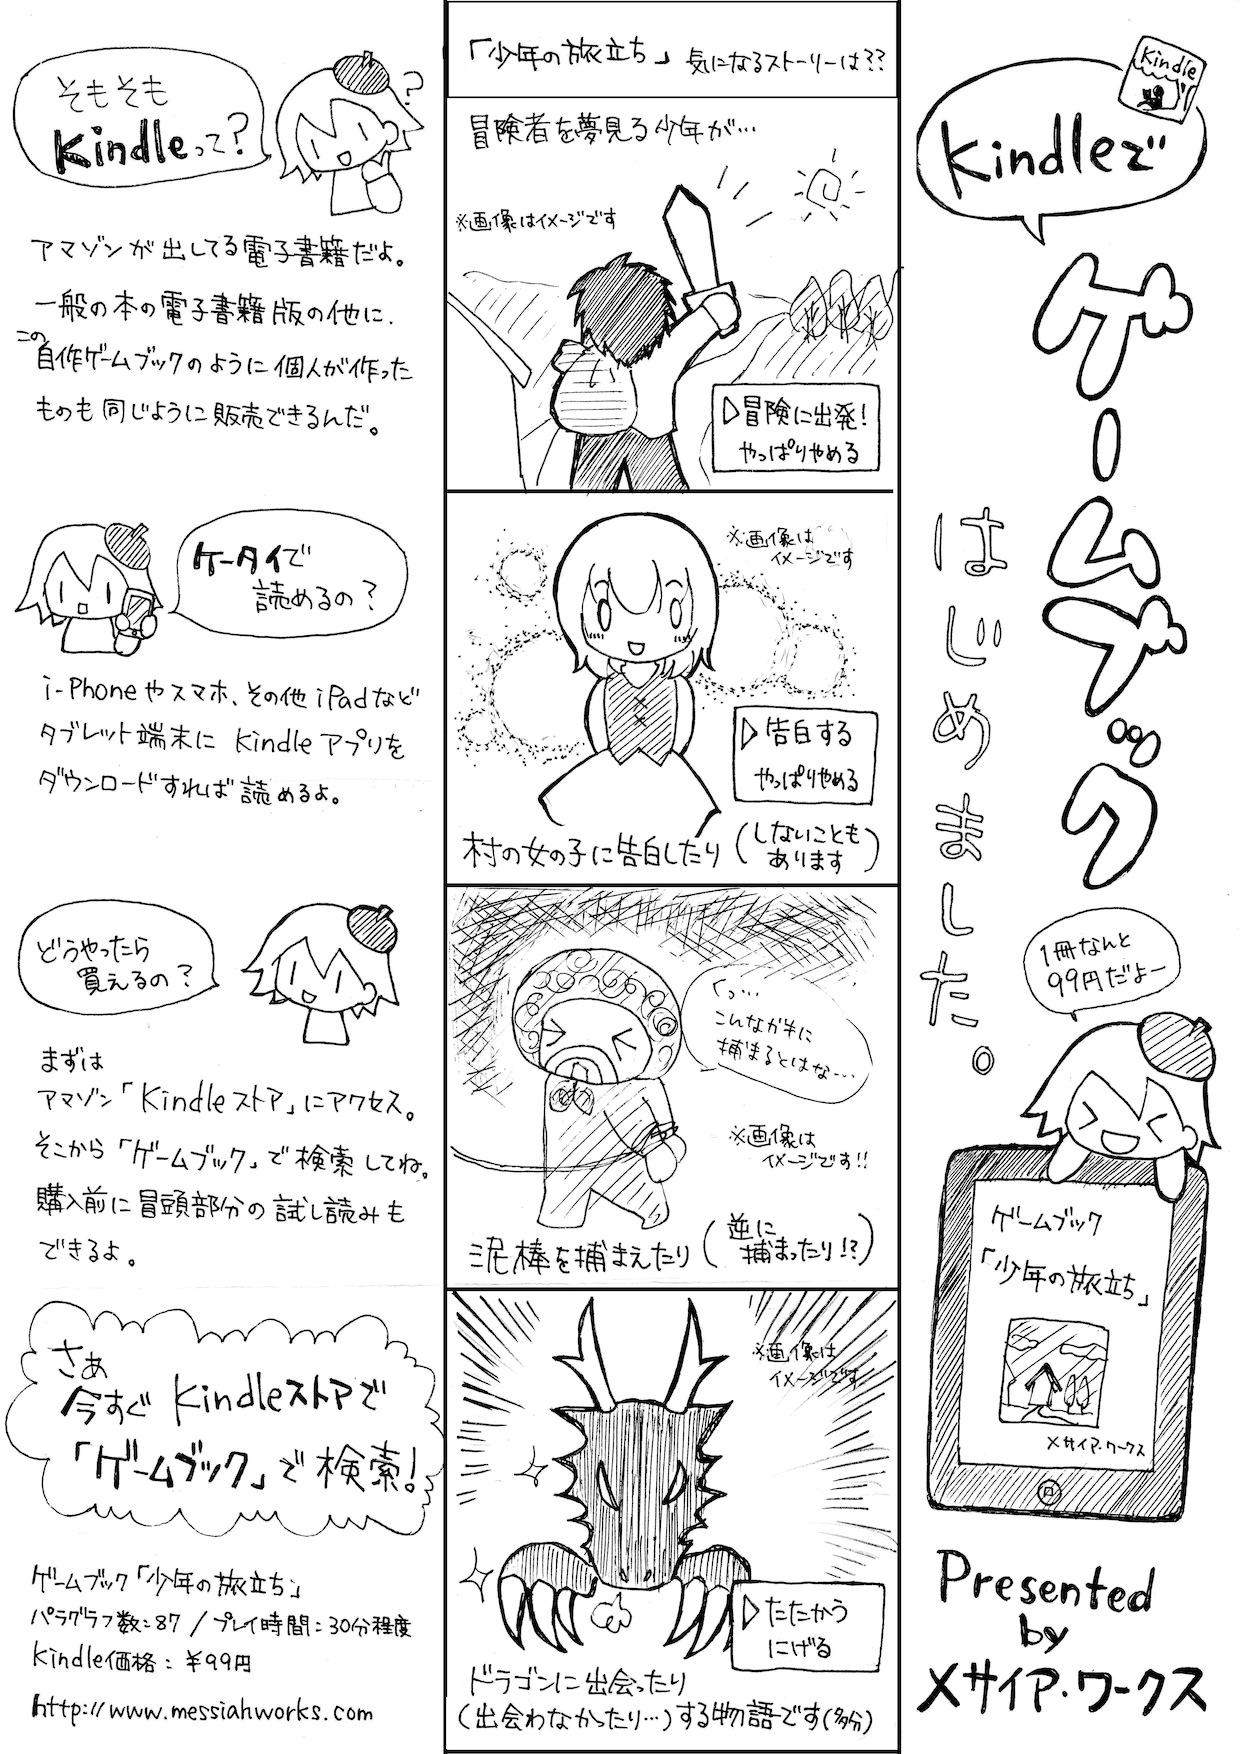 Kindle
Kindleで
ゲームブック
はじめました。
1冊なんと
99円だよー
ゲームブック
「少年の旅立ち」
メサイア・ワークス
Presented
by
メサイア・ワークス
「少年の旅立ち」 気になるストーリーは??
冒険者を夢見る少年が…
※画像はイメージです
▷冒険に出発!
やっぱりやめる
※画像は
イメージです
▷告白する
やっぱりやめる
村の女の子に告白したり(しないことも
あります)
くっ…
こんなガキに
捕まるとはな…
※画像は
イメージです!!
泥棒を捕まえたり(逆に
捕まったり!?)
※画像は
イメージです
▷たたかう
にげる
ドラゴンに出会ったり
(出会わなかったり…)する物語です(多分)
そもそも
Kindleって?
?
アマゾンが出してる電子書籍だよ。
一般の本の電子書籍版の他に、
この自作ゲームブックのように個人が作った
ものも同じように販売できるんだ。
ケータイで
読めるの?
i-Phoneやスマホ、その他iPadなど
タブレット端末にKindleアプリを
ダウンロードすれば読めるよ。
どうやったら
買えるの?
まずは
アマゾン「Kindleストア」にアクセス。
そこから「ゲームブック」で検索してね。
購入前に冒頭部分の試し読みも
できるよ。
さぁ
今すぐKindleストアで
「ゲームブック」で検索!
ゲームブック「少年の旅立ち」
パラグラフ数:87/プレイ時間:30分程度
Kindle価格:¥99円
http://www.messiahworks.com